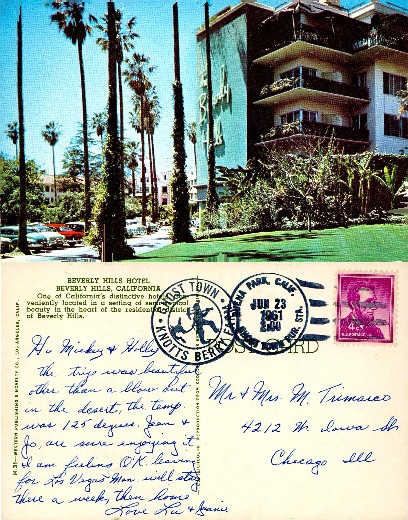 The
Beverly Hills
BEVERLY HILLS HOTEL
BEVERLY HILLS, CALIFORNIA
One of California's distinctive hotels
veniently located in a setting of
beauty in the heart of the residential district
of Beverly Hills.
GHOST TOWN
KNOTTS BERRY
BUENA PARK, CALIF.
JUN 23
1961
GHOST TOWN RUR. STA.
4¢
U.S. POSTAGE
POST CARD
WESTERN PUBLISHING & NOVELTY CO., LOS ANGELES, CALIF.
Hi Mickey & Holly
the trip was beautiful
other than a blow out
in the desert, the temp.
was 125 degrees. Jean &
Jo, are sure enjoying it
I am feeling O.K. leaving
for Las Vegas Mon will stay
there a week, then home
Love Lu & Jeanie
Mr & Mrs. M. Trimarco
4212 W. Iowa St
Chicago Ill